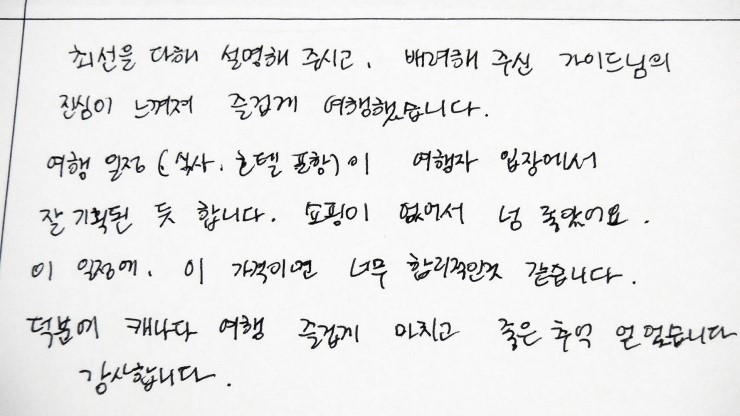 최선을 다해 설명해 주시고, 배려해 주신 가이드님의
진심이 느껴져 즐겁게 여행했습니다.
여행 일정(식사, 호텔 포함)이 여행자 입장에서
잘 기획된 듯 합니다. 쇼핑이 없어서 넘 좋았어요.
이 일정에, 이 가격이면 너무 합리적인것 같습니다.
덕분에 캐나다 여행 즐겁게 마치고 좋은 추억 얻었습니다
감사합니다.